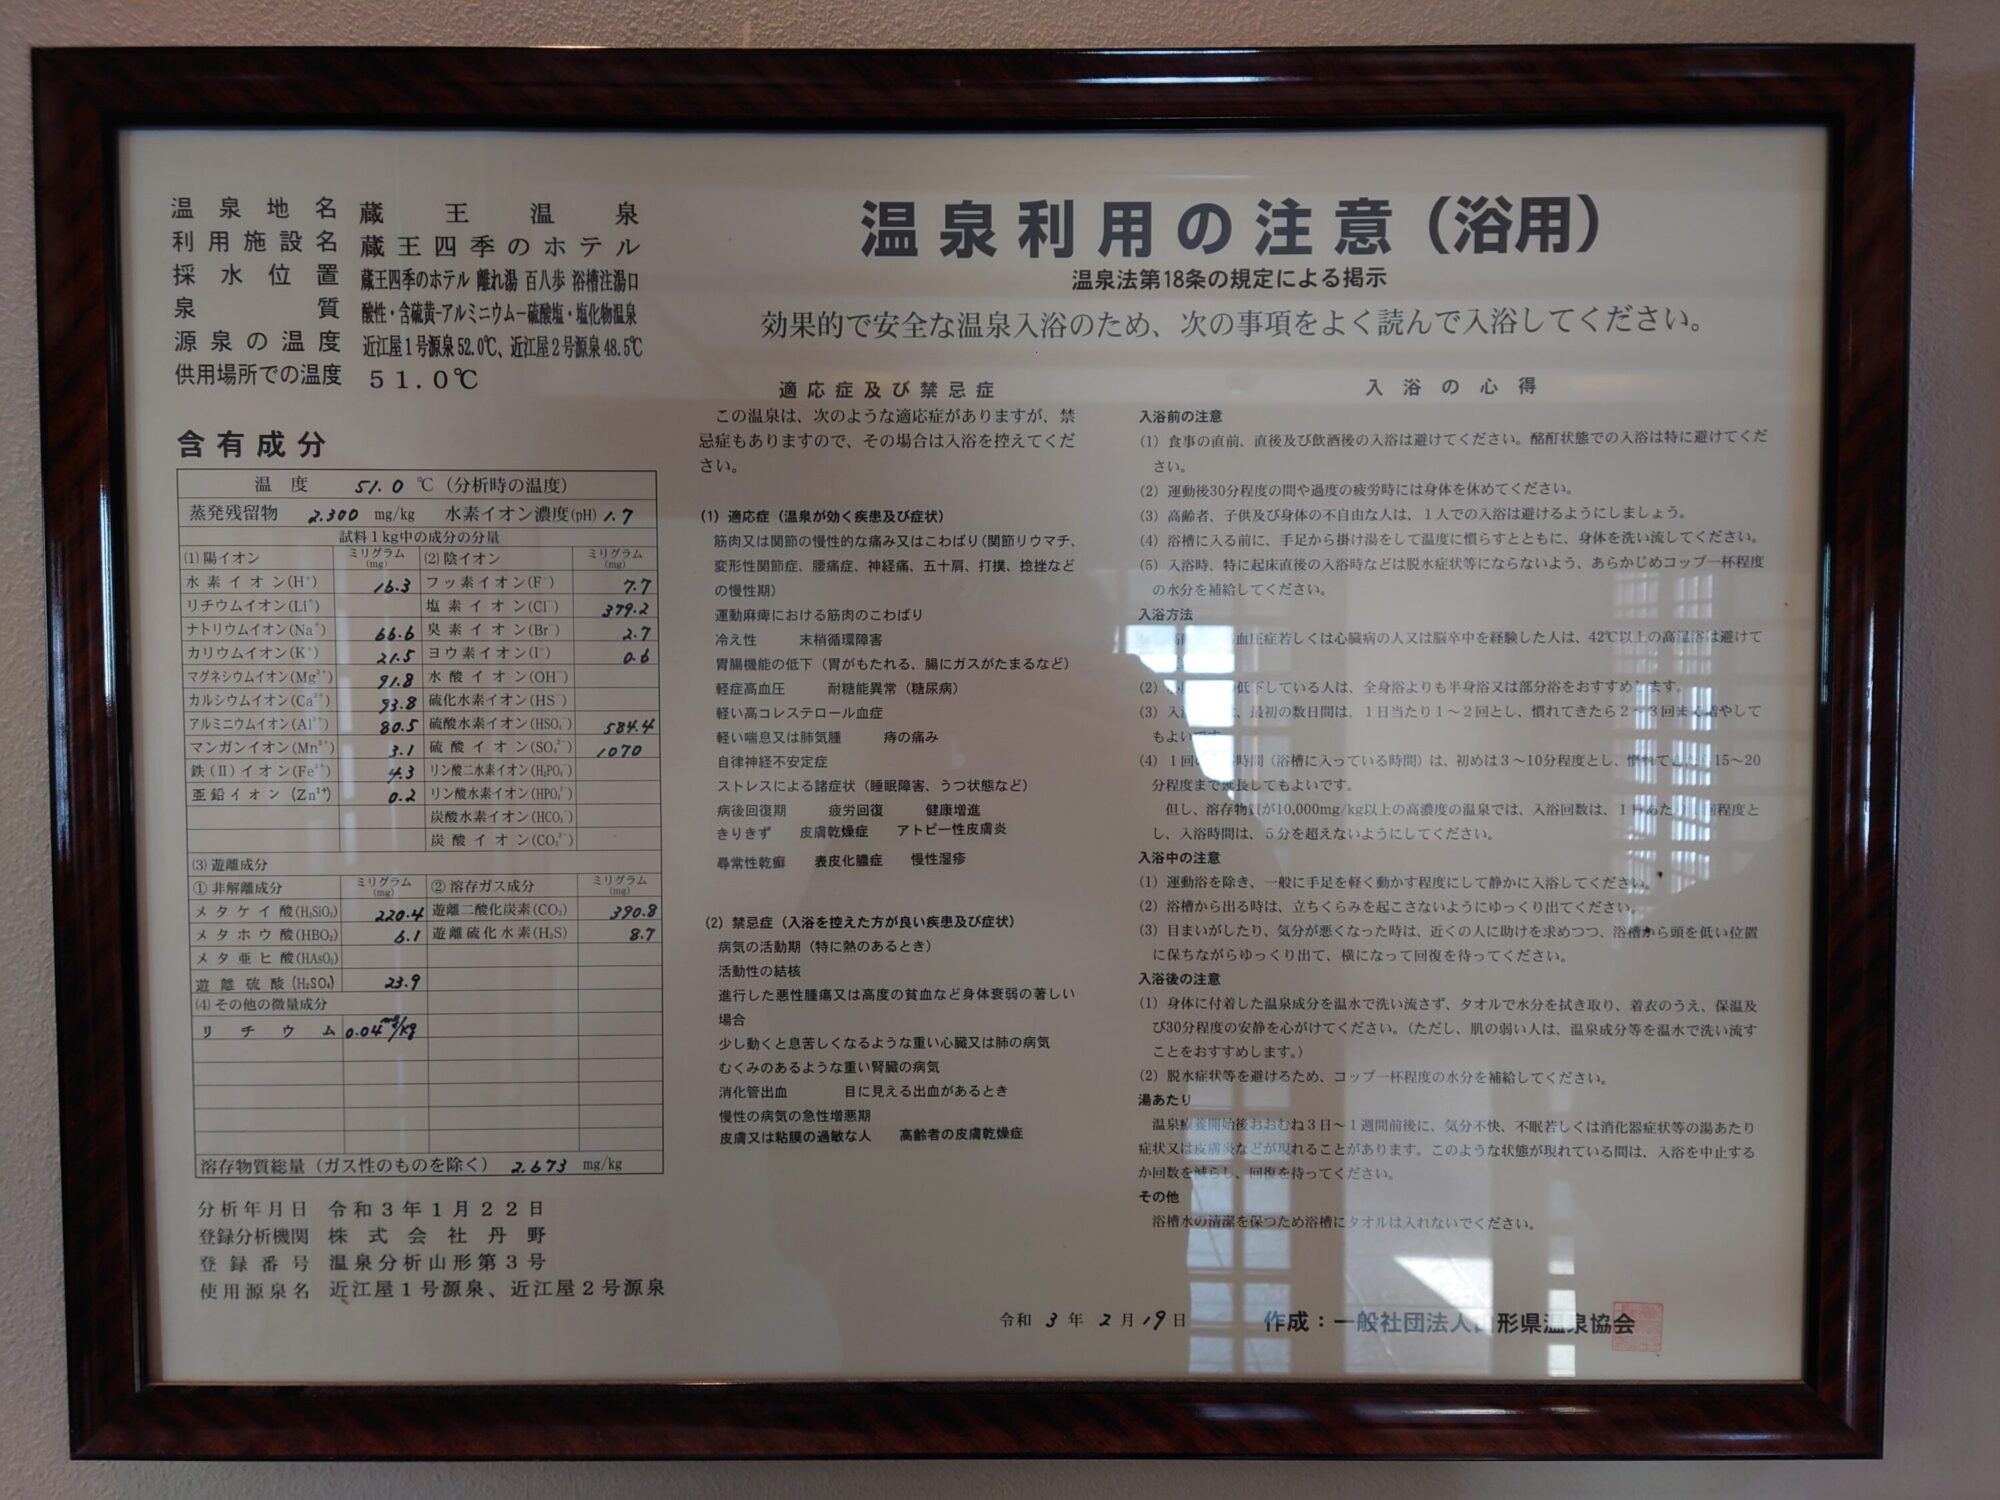 温泉地名 蔵王温泉
利用施設名 蔵王四季のホテル
採水位置 蔵王四季のホテル 離れ湯 百八歩 浴槽注湯口
泉質 酸性・含硫黄-アルミニウムー硫酸塩・塩化物温泉
源泉の温度 近江屋1号源泉52.0℃、近江屋2号源泉48.5℃
供用場所での温度 51.0℃
含有成分
温度 51.0 ℃(分析時の温度)
蒸発残留物 2.300 mg/kg 水素イオン濃度(pH) 1.7
試料1kg中の成分の分量
(1) 陽イオン ミリグラム(mg) (2) 陰イオン ミリグラム(mg)
水素イオン(H⁺) 16.3 フッ素イオン(F⁻) 7.7
リチウムイオン(Li⁺) 塩素イオン(Cl⁻) 379.2
ナトリウムイオン(Na⁺) 66.6 臭素イオン(Br⁻) 2.7
カリウムイオン(K⁺) 21.5 ヨウ素イオン(I⁻) 0.6
マグネシウムイオン(Mg²⁺) 91.8 水酸イオン(OH⁻)
カルシウムイオン(Ca²⁺) 93.8 硫化水素イオン(HS⁻)
アルミニウムイオン(Al³⁺) 80.5 硫酸水素イオン(HSO₄⁻) 584.4
マンガンイオン(Mn²⁺) 3.1 硫酸イオン(SO₄²⁻) 1070
鉄(II)イオン(Fe²⁺) 4.3 リン酸二水素イオン(H₂PO₄⁻)
亜鉛イオン(Zn²⁺) 0.2 リン酸水素イオン(HPO₄²⁻)
炭酸水素イオン(HCO₃⁻)
炭酸イオン(CO₃²⁻)
(3) 遊離成分
① 非解離成分 ミリグラム(mg) ② 溶存ガス成分 ミリグラム(mg)
メタケイ酸(H₂SiO₃) 220.4 遊離二酸化炭素(CO₂) 390.8
メタホウ酸(HBO₂) 6.1 遊離硫化水素(H₂S) 8.7
メタ亜ヒ酸(HAsO₂)
遊離硫酸(H₂SO₄) 23.9
(4) その他の微量成分
リチウム 0.04mg/kg
溶存物質総量(ガス性のものを除く) 2.673 mg/kg
分析年月日 令和3年1月22日
登録分析機関 株式会社丹野
登録番号 温泉分析山形第3号
使用源泉名 近江屋1号源泉、近江屋2号源泉
温泉利用の注意(浴用)
温泉法第18条の規定による掲示
効果的で安全な温泉入浴のため、次の事項をよく読んで入浴してください。
適応症及び禁忌症
この温泉は、次のような適応症がありますが、禁
忌症もありますので、その場合は入浴を控えてくだ
さい。
(1) 適応症(温泉が効く疾患及び症状)
筋肉又は関節の慢性的な痛み又はこわばり(関節リウマチ、
変形性関節症、腰痛症、神経痛、五十肩、打撲、捻挫など
の慢性期)
運動麻痺における筋肉のこわばり
冷え性 末梢循環障害
胃腸機能の低下(胃がもたれる、腸にガスがたまるなど)
軽症高血圧 耐糖能異常(糖尿病)
軽い高コレステロール血症
軽い喘息又は肺気腫 痔の痛み
自律神経不安定症
ストレスによる諸症状(睡眠障害、うつ状態など)
病後回復期 疲労回復 健康増進
きりきず 皮膚乾燥症 アトピー性皮膚炎
尋常性乾癬 表皮化膿症 慢性湿疹
(2) 禁忌症(入浴を控えた方が良い疾患及び症状)
病気の活動期(特に熱のあるとき)
活動性の結核
進行した悪性腫瘍又は高度の貧血など身体衰弱の著しい
場合
少し動くと息苦しくなるような重い心臓又は肺の病気
むくみのあるような重い腎臓の病気
消化管出血 目に見える出血があるとき
慢性の病気の急性増悪期
皮膚又は粘膜の過敏な人 高齢者の皮膚乾燥症
入浴の心得
入浴前の注意
(1) 食事の直前、直後及び飲酒後の入浴は避けてください。酩酊状態での入浴は特に避けてくだ
さい。
(2) 運動後30分程度の間や過度の疲労時には身体を休めてください。
(3) 高齢者、子供及び身体の不自由な人は、1人での入浴は避けるようにしましょう。
(4) 浴槽に入る前に、手足から掛け湯をして温度に慣らすとともに、身体を洗い流してください。
(5) 入浴時、特に起床直後の入浴時などは脱水症状等にならないよう、あらかじめコップ一杯程度
の水分を補給してください。
入浴方法
血圧症若しくは心臓病の人又は脳卒中を経験した人は、42℃以上の高温浴は避けて
(2) 低下している人は、全身浴よりも半身浴又は部分浴をおすすめします。
(3) 最初の数日間は、1日当たり1〜2回とし、慣れてきたら2〜3回まで増やして
もよいです。
(4) 1回の 時間(浴槽に入っている時間)は、初めは3〜10分程度とし、慣れてきたら15〜20
分程度まで延長してもよいです。
但し、溶存物質が10,000mg/kg以上の高濃度の温泉では、入浴回数は、1日あたり 回程度と
し、入浴時間は、5分を超えないようにしてください。
入浴中の注意
(1) 運動浴を除き、一般に手足を軽く動かす程度にして静かに入浴してください。
(2) 浴槽から出る時は、立ちくらみを起こさないようにゆっくり出てください。
(3) 目まいがしたり、気分が悪くなった時は、近くの人に助けを求めつつ、浴槽から頭を低い位置
に保ちながらゆっくり出て、横になって回復を待ってください。
入浴後の注意
(1) 身体に付着した温泉成分を温水で洗い流さず、タオルで水分を拭き取り、着衣のうえ、保温及
び30分程度の安静を心がけてください。(ただし、肌の弱い人は、温泉成分等を温水で洗い流す
ことをおすすめします。)
(2) 脱水症状等を避けるため、コップ一杯程度の水分を補給してください。
湯あたり
温泉療養開始後おおむね3日〜1週間前後に、気分不快、不眠若しくは消化器症状等の湯あたり
症状又は皮膚炎などが現れることがあります。このような状態が現れている間は、入浴を中止する
か回数を減らし、回復を待ってください。
その他
浴槽水の清潔を保つため浴槽にタオルは入れないでください。
令和3年2月19日 作成:一般社団法人山形県温泉協会